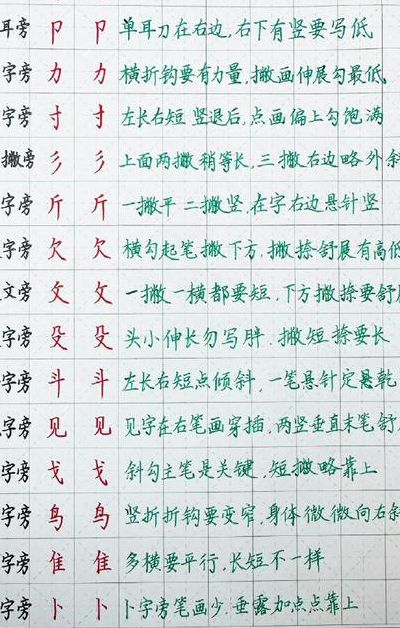 耳旁 卩 卩 单耳刀在右边,右下有竖要写低
字旁 力 力 横折钩要有力量,撇画伸展勾最低
字旁 寸 寸 左长右短竖退后,点画偏上勾饱满
撇旁 彡 彡 上面两撇稍等长,三撇右边略外斜
字旁 斤 斤 一撇平二撇竖,在字右边悬针竖
字旁 欠 欠 横勾起笔撇下方,撇捺舒展有高低
文旁 攵 攵 一撇一横都要短,下方撇捺要舒展
字旁 殳 殳 头小伸长勿写胖.撇短捺要长
字旁 斗 斗 左长右短点倾斜,一笔悬针定悬乾
字旁 见 见 见字在右笔画穿插,两竖垂直末笔舒
字旁 戈 戈 斜勾主笔是关键,短撇略靠上
字旁 鸟 鸟 竖折折钩要变窄,身体微微向右斜
字旁 隹 隹 多横要平行,长短不一样
字旁 卜 卜 卜字旁笔画少,垂露加点点靠上